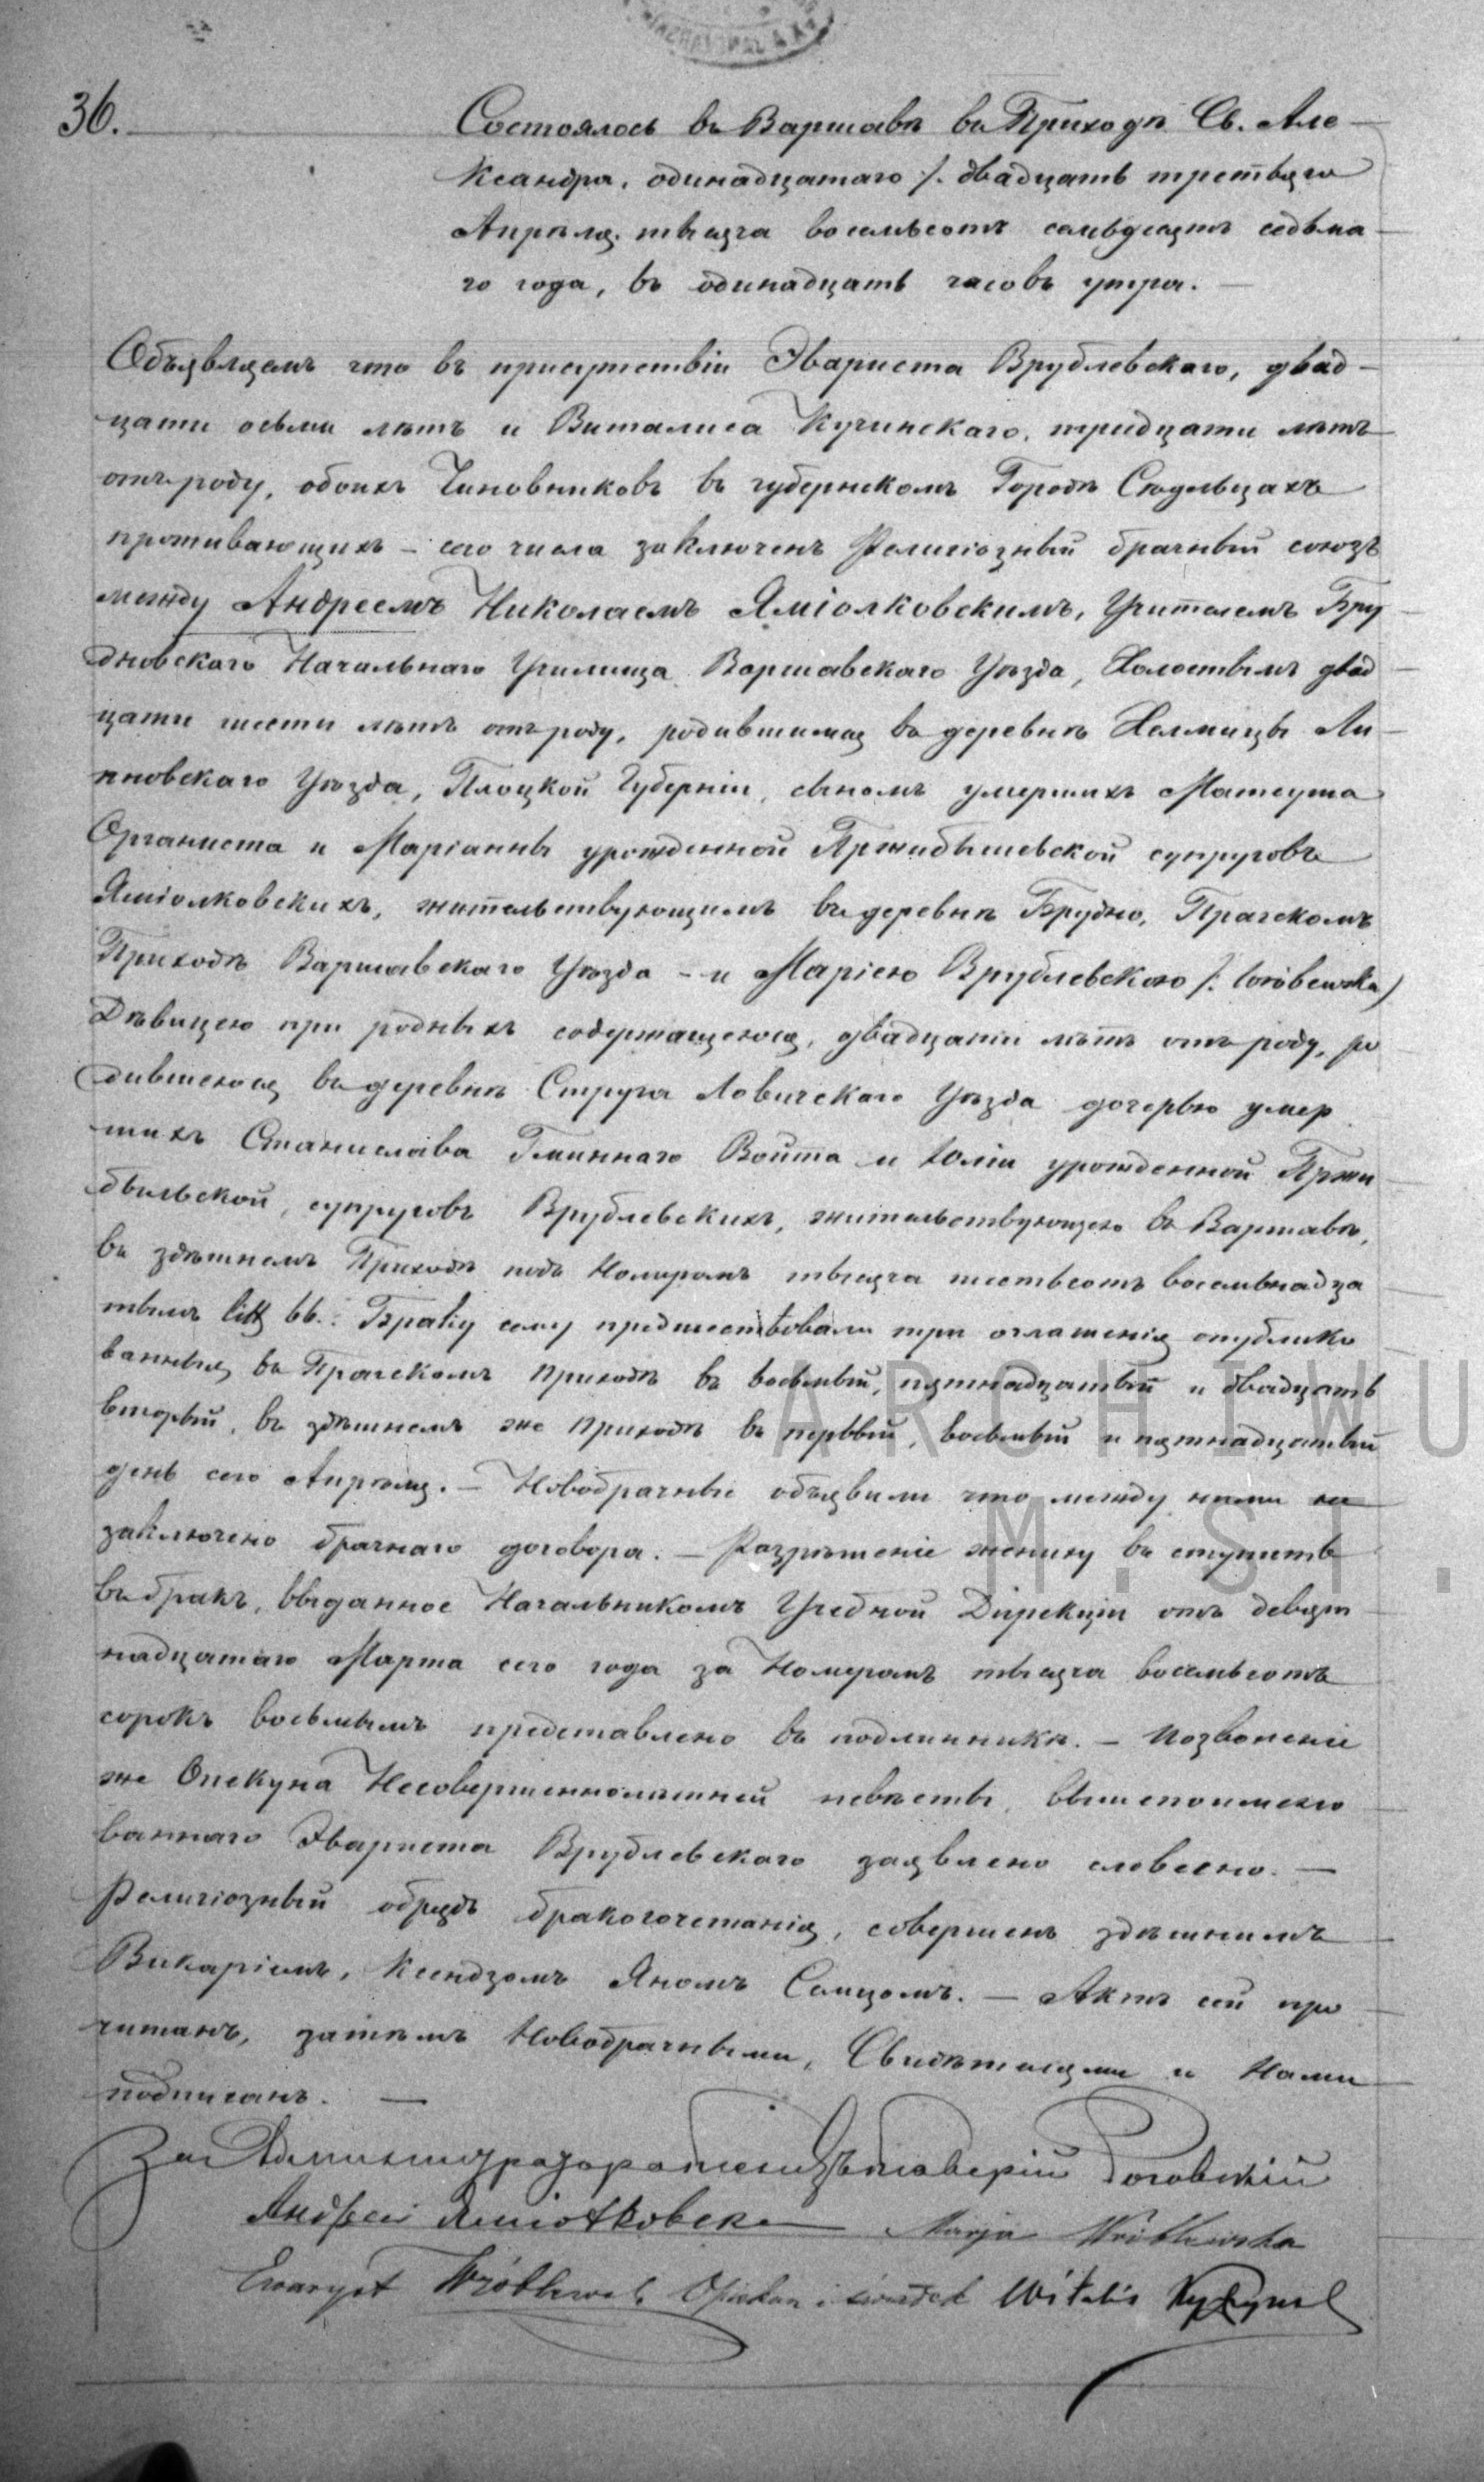 36.
Состоялось въ Варшавѣ въ Приходѣ Св. Але
ксандра, одинадцатаго /. двадцать третьяго
Апрѣля, тысяча восемьсотъ семьдесятъ седьма
го года, въ одинадцать часовъ утра. —
Объявляемъ что въ присутствіи Эвариста Врублевскаго, двад
цати осьми лѣтъ и Виталиса Кучинскаго, тридцати лѣтъ
отъ роду, обоихъ Чиновниковъ въ губернскомъ Городѣ Сѣдльцахъ
проживающихъ — сего числа заключенъ Религіозный брачный союзъ
между Андреемъ Николаемъ Яміолковскимъ, Учителемъ Бру
дновскаго Начальнаго Училища Варшавскаго Уѣзда, Холостымъ двад
цати шести лѣтъ отъ роду, родившимся въ деревнѣ Хелмицы Ли
пновскаго Уѣзда, Плоцкой Губерніи, сыномъ умершихъ Матеуша
Органиста и Маріанны урожденной Пржибышевской супруговъ
Яміолковскихъ, жительствующимъ въ деревнѣ Брудно, Пражскомъ
Приходѣ Варшавскаго Уѣзда — и Маріею Врублевскою /:
Дѣвицею при родныхъ содержащеюся, двадцати лѣтъ отъ роду, ро
дившеюся въ деревнѣ Струга Ловичскаго Уѣзда дочерью умер
шихъ Станислава Гминнаго Войта и Юліи урожденной Пржи
быльской, супруговъ Врублевскихъ, жительствующею въ Варшавѣ,
въ здѣшнемъ Приходѣ подъ Номеромъ тысяча шестьсотъ восемьнадца
тымъ litt bb. Браку сему предшествовали три оглашенія опублико
ванныя въ Пражскомъ Приходѣ въ восьмый, пятнадцатый и двадцать
вторый, въ здѣшнемъ же Приходѣ въ первый, восьмый и пятнадцатый
день сего Апрѣля. — Новобрачные объявили что между ними не
заключено брачнаго договора. — Разрѣшеніе жениху въ ступить
въ бракъ, выданное Начальникомъ Учебной Дирекціи отъ девят
надцатаго Марта сего года за Номеромъ тысяча восемьсотъ
сорокъ восьмымъ представлено въ подлинникѣ. — Позволеніе
же Опекуна Несовершеннолѣтней невѣсты, вышепоимено
ваннаго Эвариста Врублевскаго заявлено словесно. —
Религіозный обрядъ бракосочетанія, совершенъ здѣшнимъ
Викаріемъ, Ксендзомъ Яномъ Самцомъ. — Актъ сей про
читанъ, затѣмъ Новобрачными, Свидѣтелями и Нами
подписанъ. —
За Администратора
Андрей Яміолковски Marja Wróblewska
Ewaryst Wróblewski Opiekun i świadek Witalis
ARCHIWU
M. ST.